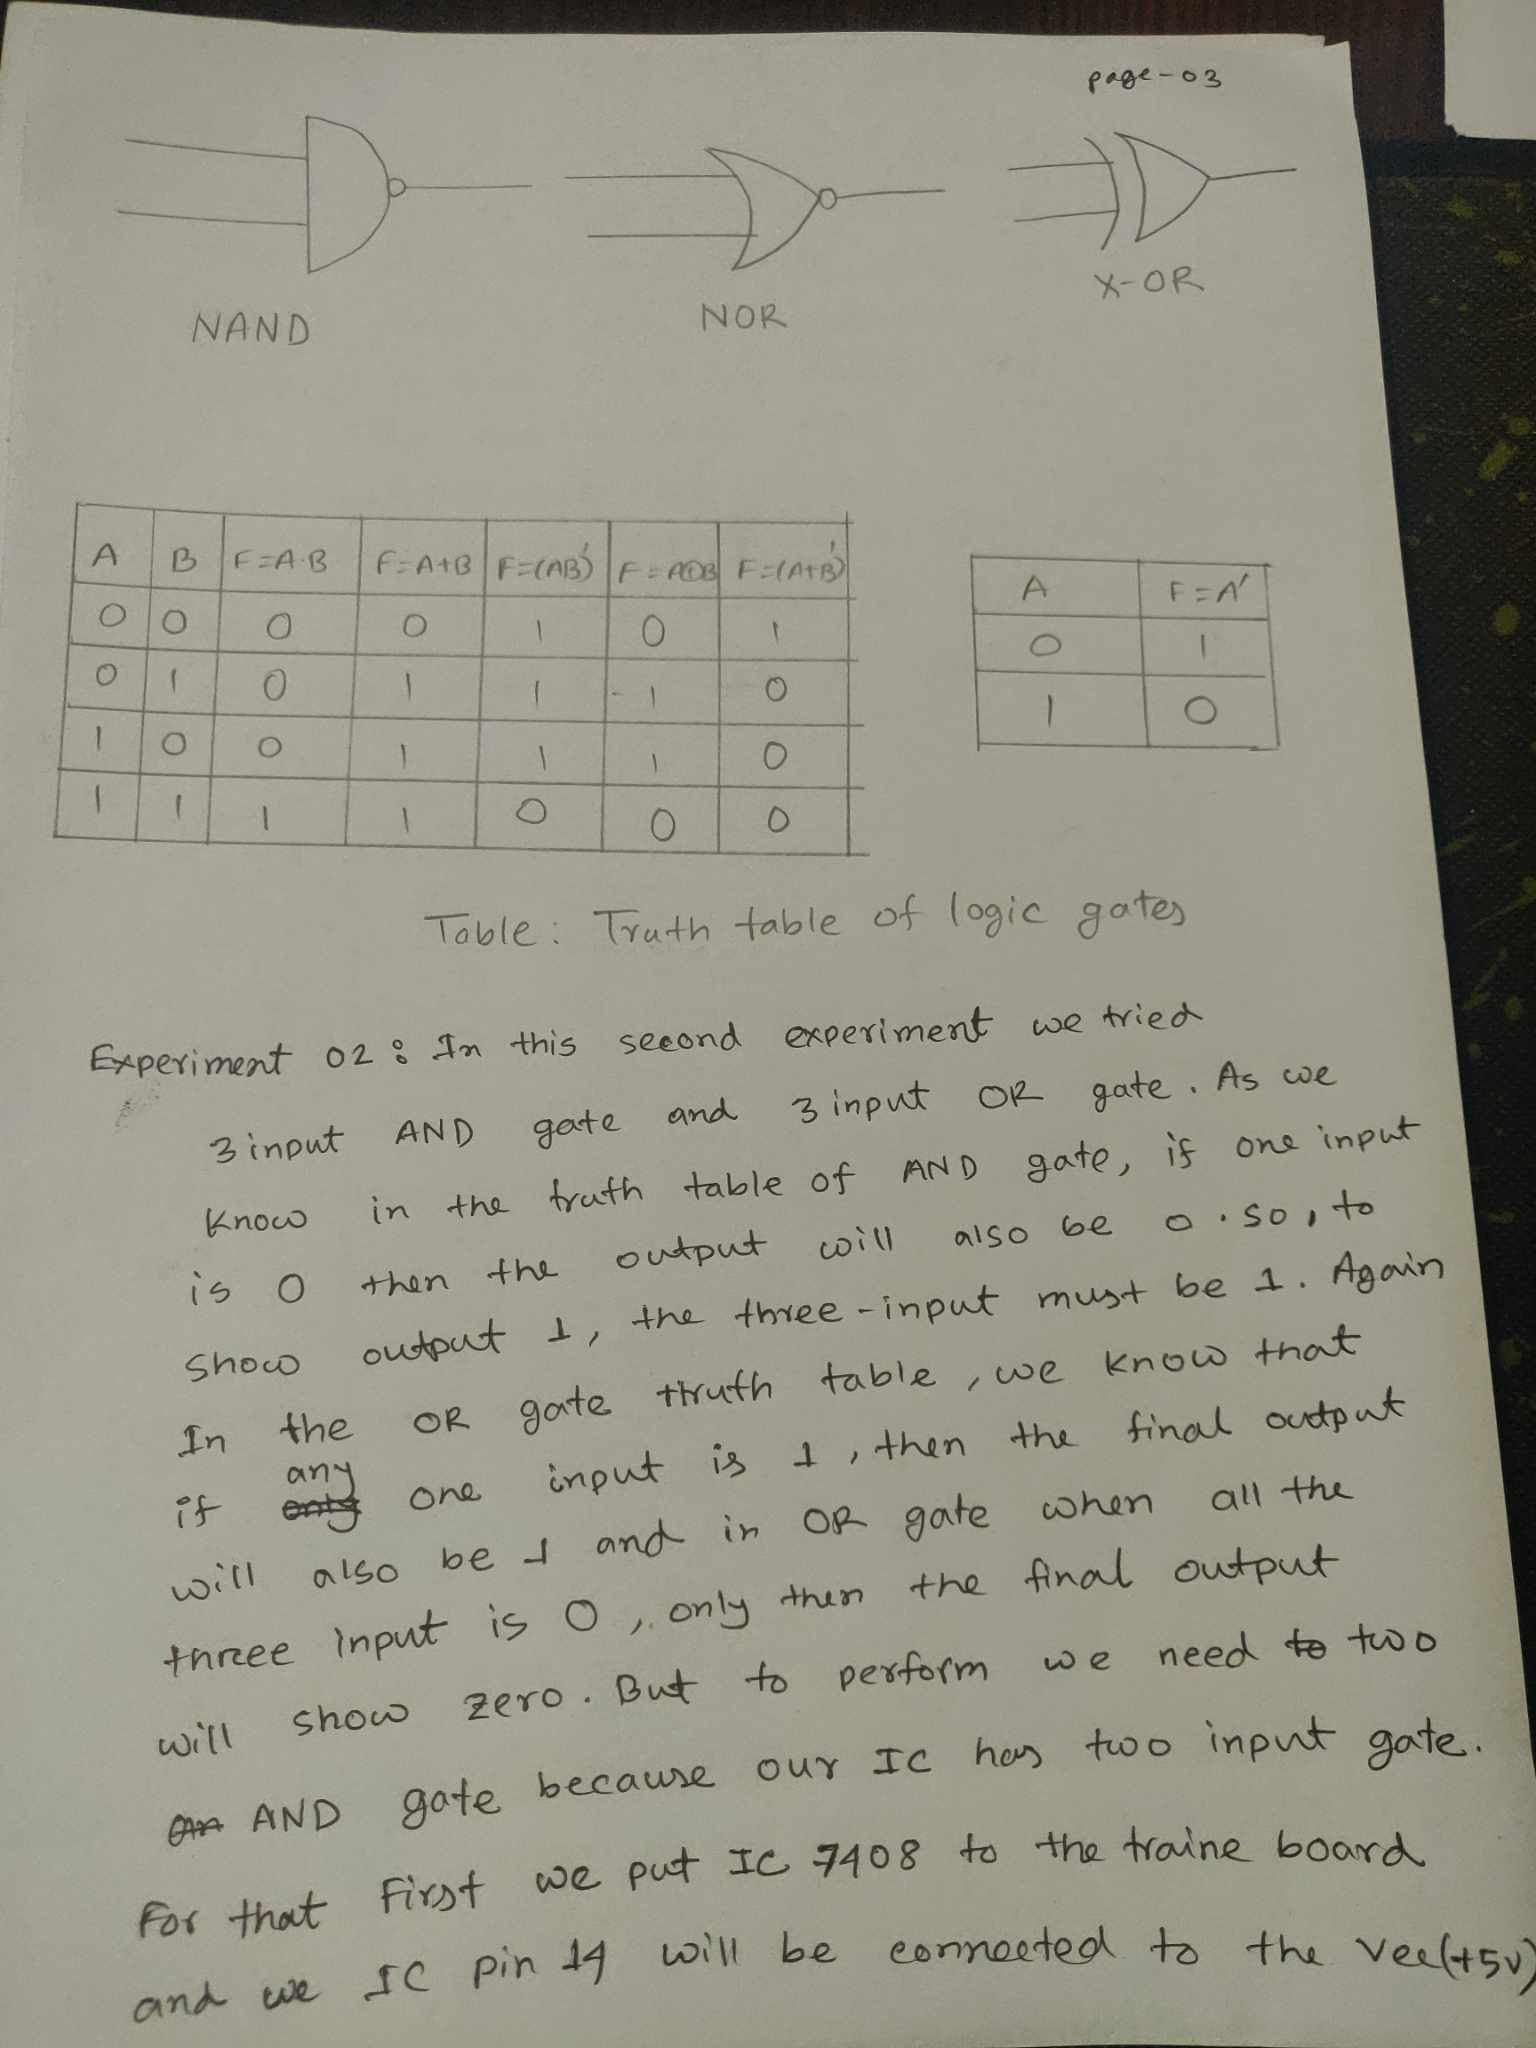 page-03
NAND
NOR
X-OR
A B F=A·B F=A+B F=(AB)' F=A⊕B F=(A+B)'
0 0 0 0 1 0 1
0 1 0 1 1 1 0
1 0 0 1 1 1 0
1 1 1 1 0 0 0
A F=A'
0 1
1 0
Table: Truth table of logic gates
Experiment 02: In this second experiment we tried
3 input AND gate and 3 input OR gate. As we
know in the truth table of AND gate, if one input
is 0 then the output will also be 0. so, to
show output 1, the three-input must be 1. Again
In the OR gate ttruth table, we know that
any
if only one input is 1, then the final output
will also be 1 and in OR gate when all the
three input is 0, only then the final output
will show zero. But to perform we need to two
an AND gate because our IC has two input gate.
For that First we put IC 7408 to the traine board
and we IC pin 14 will be connected to the Vcc(+5v)